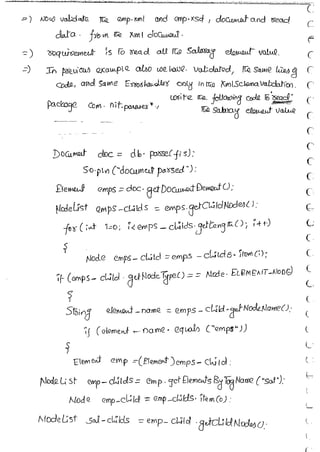 => Now validate the emp.xml and emp.xsd, document and read
data from the xml document.
=> requirement is to read all the Salary element value.
=> In previous example also we have validated, the same lines of
code, and same ErrorHandler only in the XmlSchemaValidation.
write the following code to "read"
package com.nit.parsers*; the Salary element value
Document doc = db.parse(fis);
S.o.pln("document parsed");
Element emps = doc.getDocumentElement();
NodeList emps-childs = emps.getChildNodes();
for(int i=0; i<emps-childs.getLength(); i++)
{
Node emps-child = emps-childs.item(i);
if(emps-child.getNodeType() == Node.ELEMENT_NODE)
{
String element-name = emps-child.getNodeName();
if(element-name.equals("emp"))
{
Element emp = (Element)emps-child;
NodeList emp-childs = emp.getElementsByTagName("sal");
Node emp-child = emp-childs.item(0);
NodeList sal-childs = emp-child.getChildNodes();